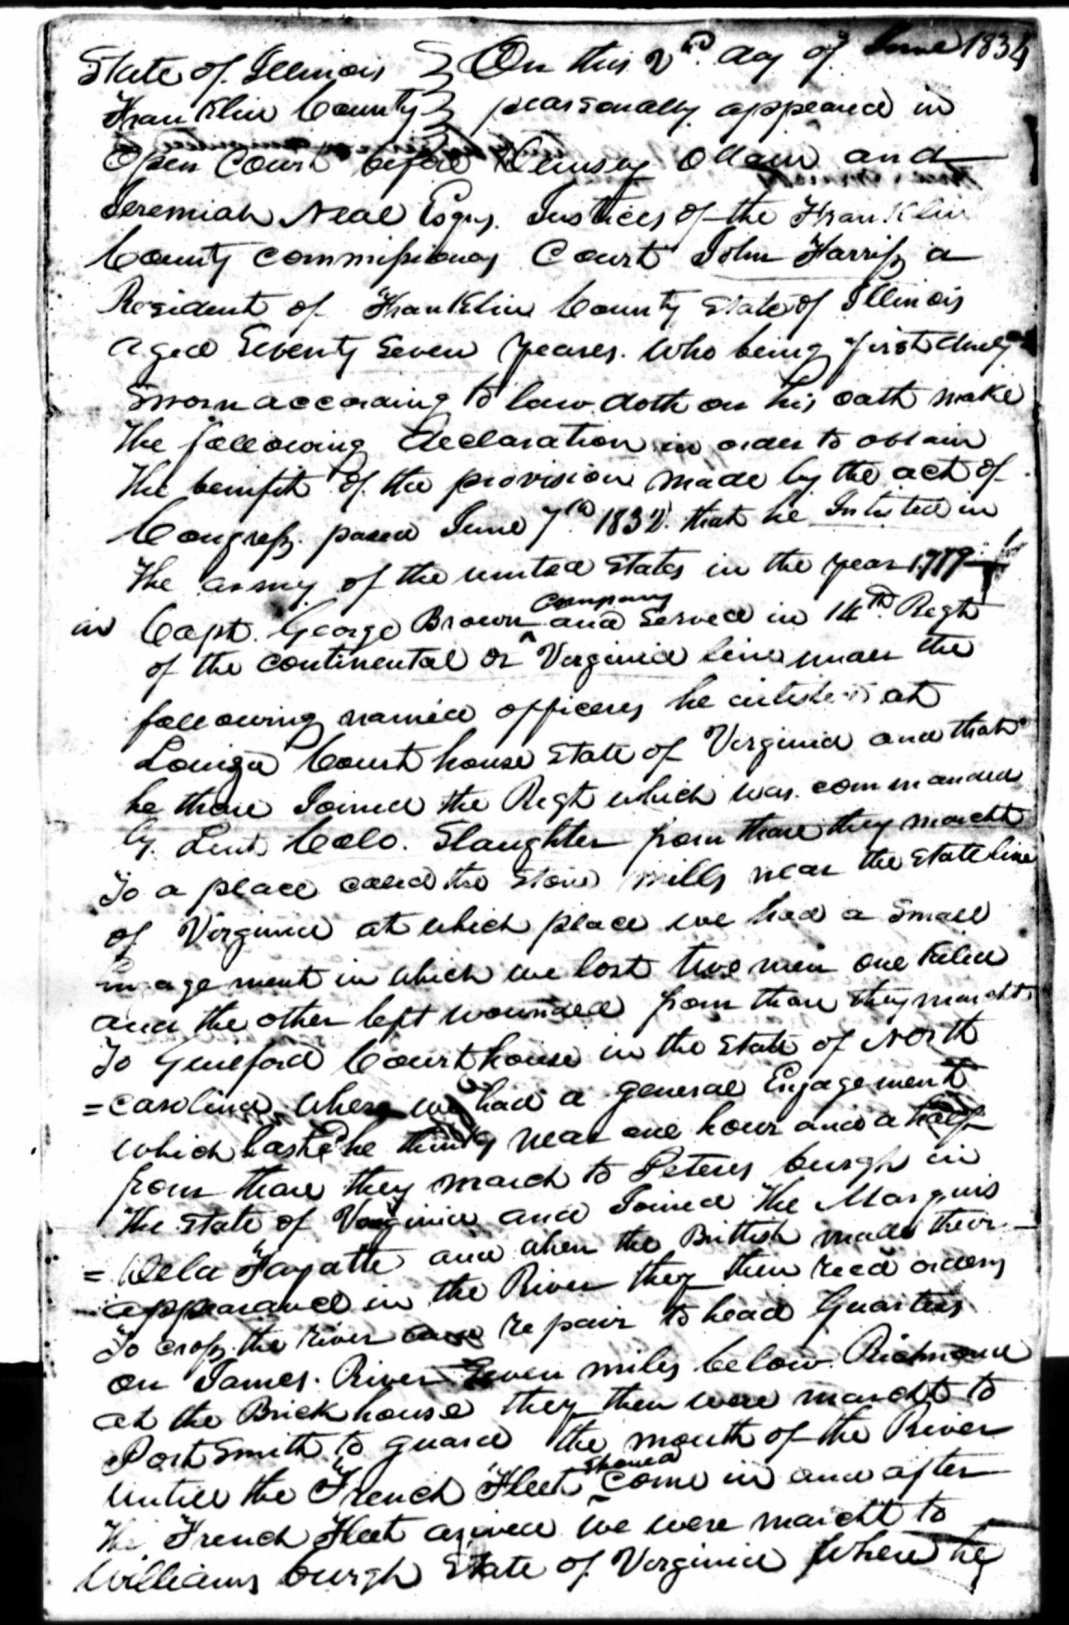 State of Illinois } On this 2nd day of June 1834
Franklin County } pearsonally appeared in
Open Court before and
Jeremiah Neal Esqrs. Justices of the Franklin
County Commissioners Court John Harriss a
Resident of Franklin County State of Illinois
aged Seventy Seven yeares. who being first duly
Sworn according to law doth on his oath make
the following declaration in order to obtain
the benifit of the provision made by the act of
Congress. pased June 7th 1832. that he Inlisted in
the army of the united States in the year 1779
in Capt. George Brown company and Served in 14th Regt
of the continental or Virginia line under the
following named officers he inlisted at
Louiza Court house State of Virginia and that
he thare Joined the Regt which was commanded
by Lieut Colo. Slaughter from thare they marcht
To a place called the Stone mills near the State line
of Virginia at which place we had a Small
ingagement in which we lost two men one killed
and the other left wounded from thare they marcht
To Gueford Courthouse in the State of North
=carolina, where we had a general Engagement
which lasted he thinks near one hour and a half
from thare they march to Peters burgh in
the State of Virginia and Joined the Marquis
=Dela Fayatte and when the Brittish made their
appearance in the River they then recd orders
To cross. the river repair to head Quarters
on James. River Seven miles below Richmond
at the Brick house they then were marcht to
PortSmith to guard the mouth of the River
untill the French Fleet should come in and after
the French Fleet arived we were marcht to
Williams burgh State of Virginia where he